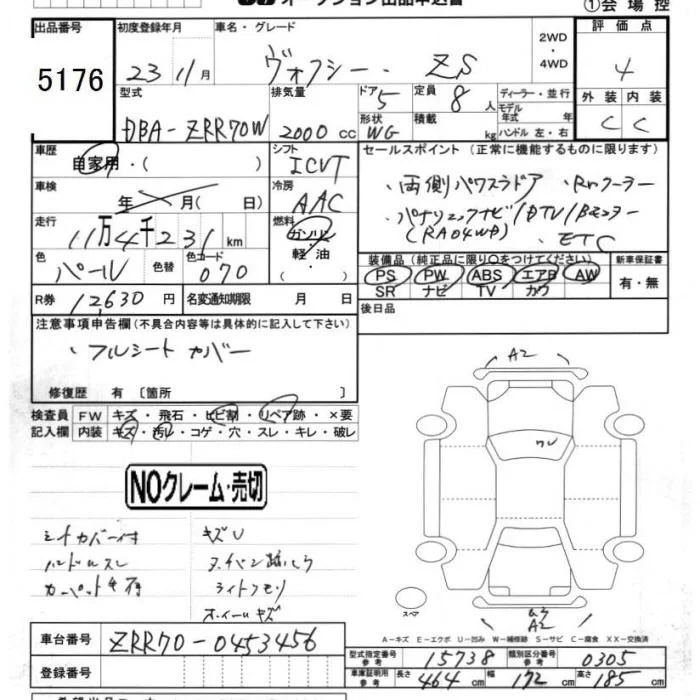 オークション出品申込書
①会場控
出品番号 5176
初度登録年月 23 11月
車名・グレード ヴォクシー・ZS
2WD・4WD
評価点 4
外装 C 内装 C
型式 DBA-ZRR70W
排気量 2000 cc
ドア 5
形状 WG
定員 8 人
積載 kg
ディーラー・並行
モデル年式 年式
ハンドル 左・右
車歴 自家用・( )
シフト ICVT
セールスポイント (正常に機能するものに限ります)
・両側パワスラドア ・Rrクーラー
・パナソニックナビ/DTV/Bモニター
(RA04WD) ・ETC
車検 年 月( 日)
冷房 AAC
走行 11万4千231 km
燃料 ガソリン・軽油・( )
色 パール 色替 色コード 070
装備品 (純正品に限り○をつけてください)
PS PW ABS エアB AW
SR ナビ TV カワ
新車保証書 有・無
R券 12,630 円
名変通知期限 月 日
後日品
注意事項申告欄 (不具合内容等は具体的に記入して下さい)
・フルシートカバー
修復歴 有 〔箇所 〕
検査員記入欄
FW キズ・飛石・ヒビ割・リペア跡・×要
内装 キズ・汚レ・コゲ・穴・スレ・キレ・破レ
NOクレーム・売切
シートカバー付 キズU
ハンドルスレ
ライトクモリ
ホイールキズ
A2
スペア
A2
A-キズ E-エクボ U-凹み W-補修跡 S-サビ C-腐食 XX-交換済
車台番号 ZRR70-0453456
登録番号
型式指定番号 参考 15738
類別区分番号 参考 0305
車庫証明用 参考 長さ 464 cm 幅 172 cm 高さ 185 cm